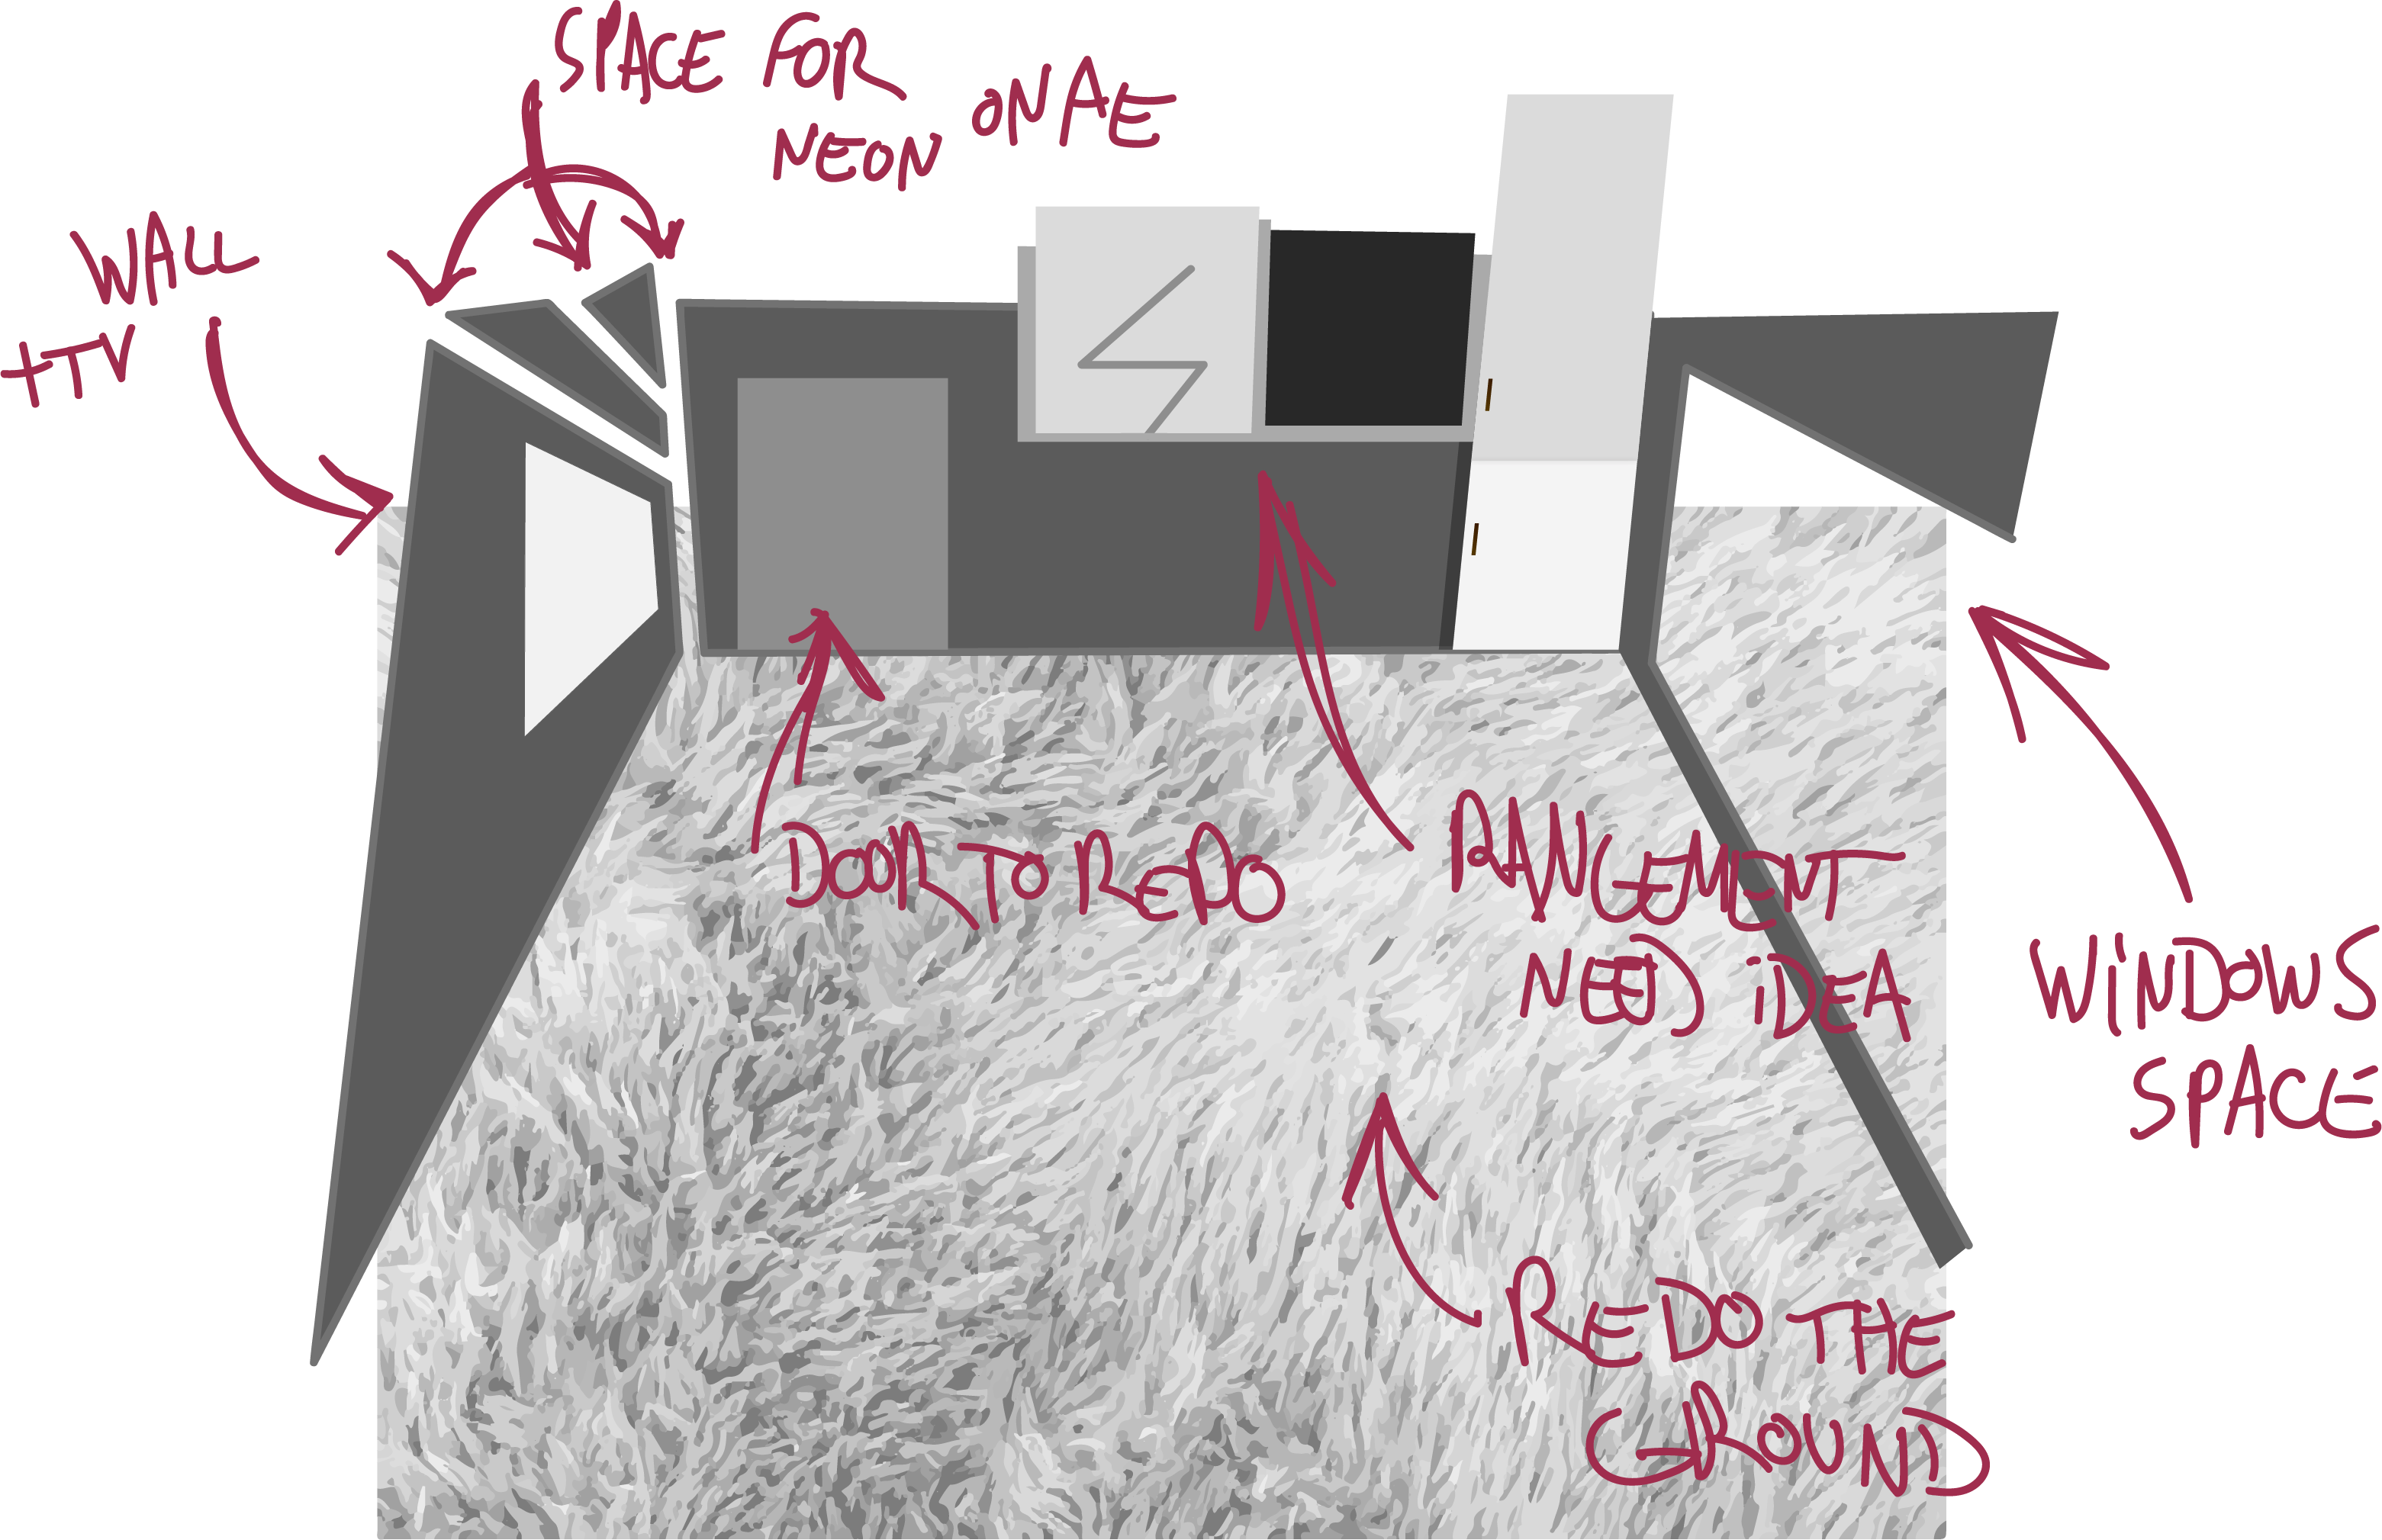 SPACE FOR
NEON ONAE
WALL
+TV
DOOR TO REDO
RANGEMENT
NEED IDEA
WINDOWS
SPACE
REDO THE
GROUND